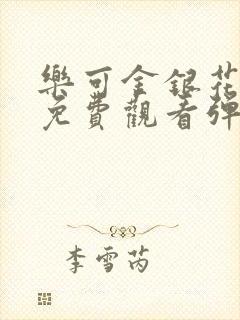 樂可金銀花
免費觀看彈
李雪芮